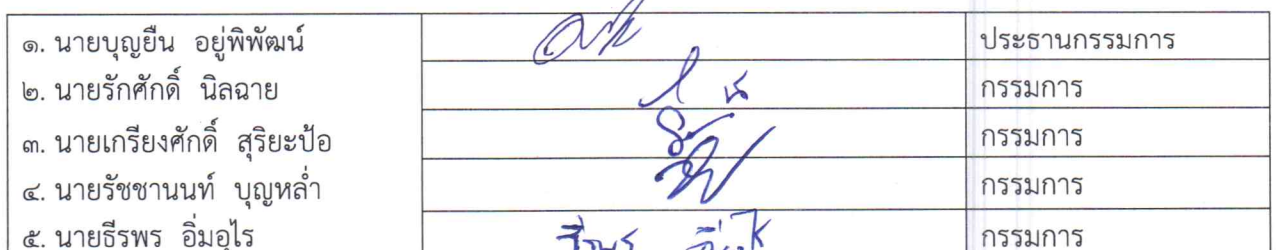 ๑. นายบุญยืน อยู่พิพัฒน์ ประธานกรรมการ
๒. นายรักศักดิ์ นิลฉาย กรรมการ
๓. นายเกรียงศักดิ์ สุริยะป้อ กรรมการ
๔. นายรัชชานนท์ บุญหล่ำ กรรมการ
๕. นายธีรพร อิ่มอุไร กรรมการ